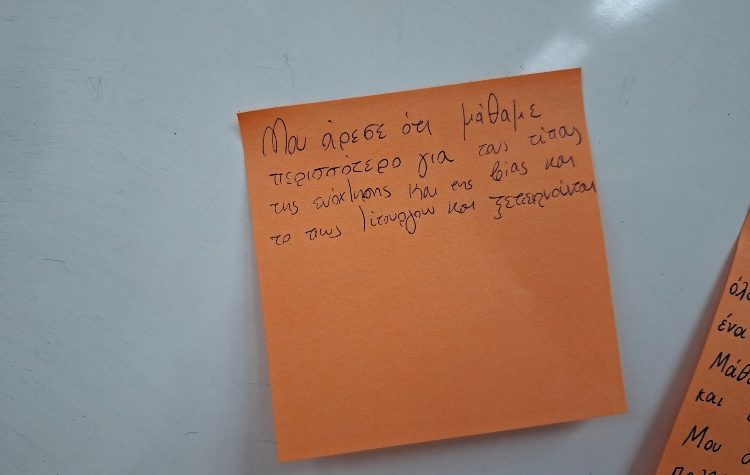 Μου άρεσε ότι μάθαμε
περισσότερο για τους τύπους
της ενόχλησης και της βίας και
το πως λιτουργουν και ξεπερνιόνται
όλο
ένα
Μάθα
και
Μου